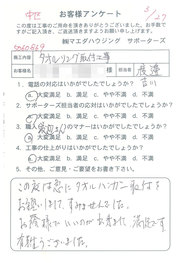 お客様アンケート
この度は工事のご用命を頂きありがとうございました。お手数で
すがご記入頂き、ご返送頂きますようお願い申し上げます。
㈱マエダハウジング サポーターズ
施工内容 タオルリング取付工事
お客様名 様 担当 渡邉
1. 電話の対応はいかがでしたでしょうか?
大変満足 満足 やや不満 不満
2. サポーターズ担当者の応対はいかがでしたでしょうか?
大変満足 満足 やや不満 不満
3. 職人 のマナーはいかがでしたでしょうか?
大変満足 満足 やや不満 不満
4. 工事の仕上がりはいかがでしたでしょうか?
大変満足 満足 やや不満 不満
5. その他、ご意見・ご要望をお書き下さい。
この度は急に タオルハンガー取付を
お願いしまして すみませんでした。
お陰様で いいのが出来て 満足です
有難うございました。